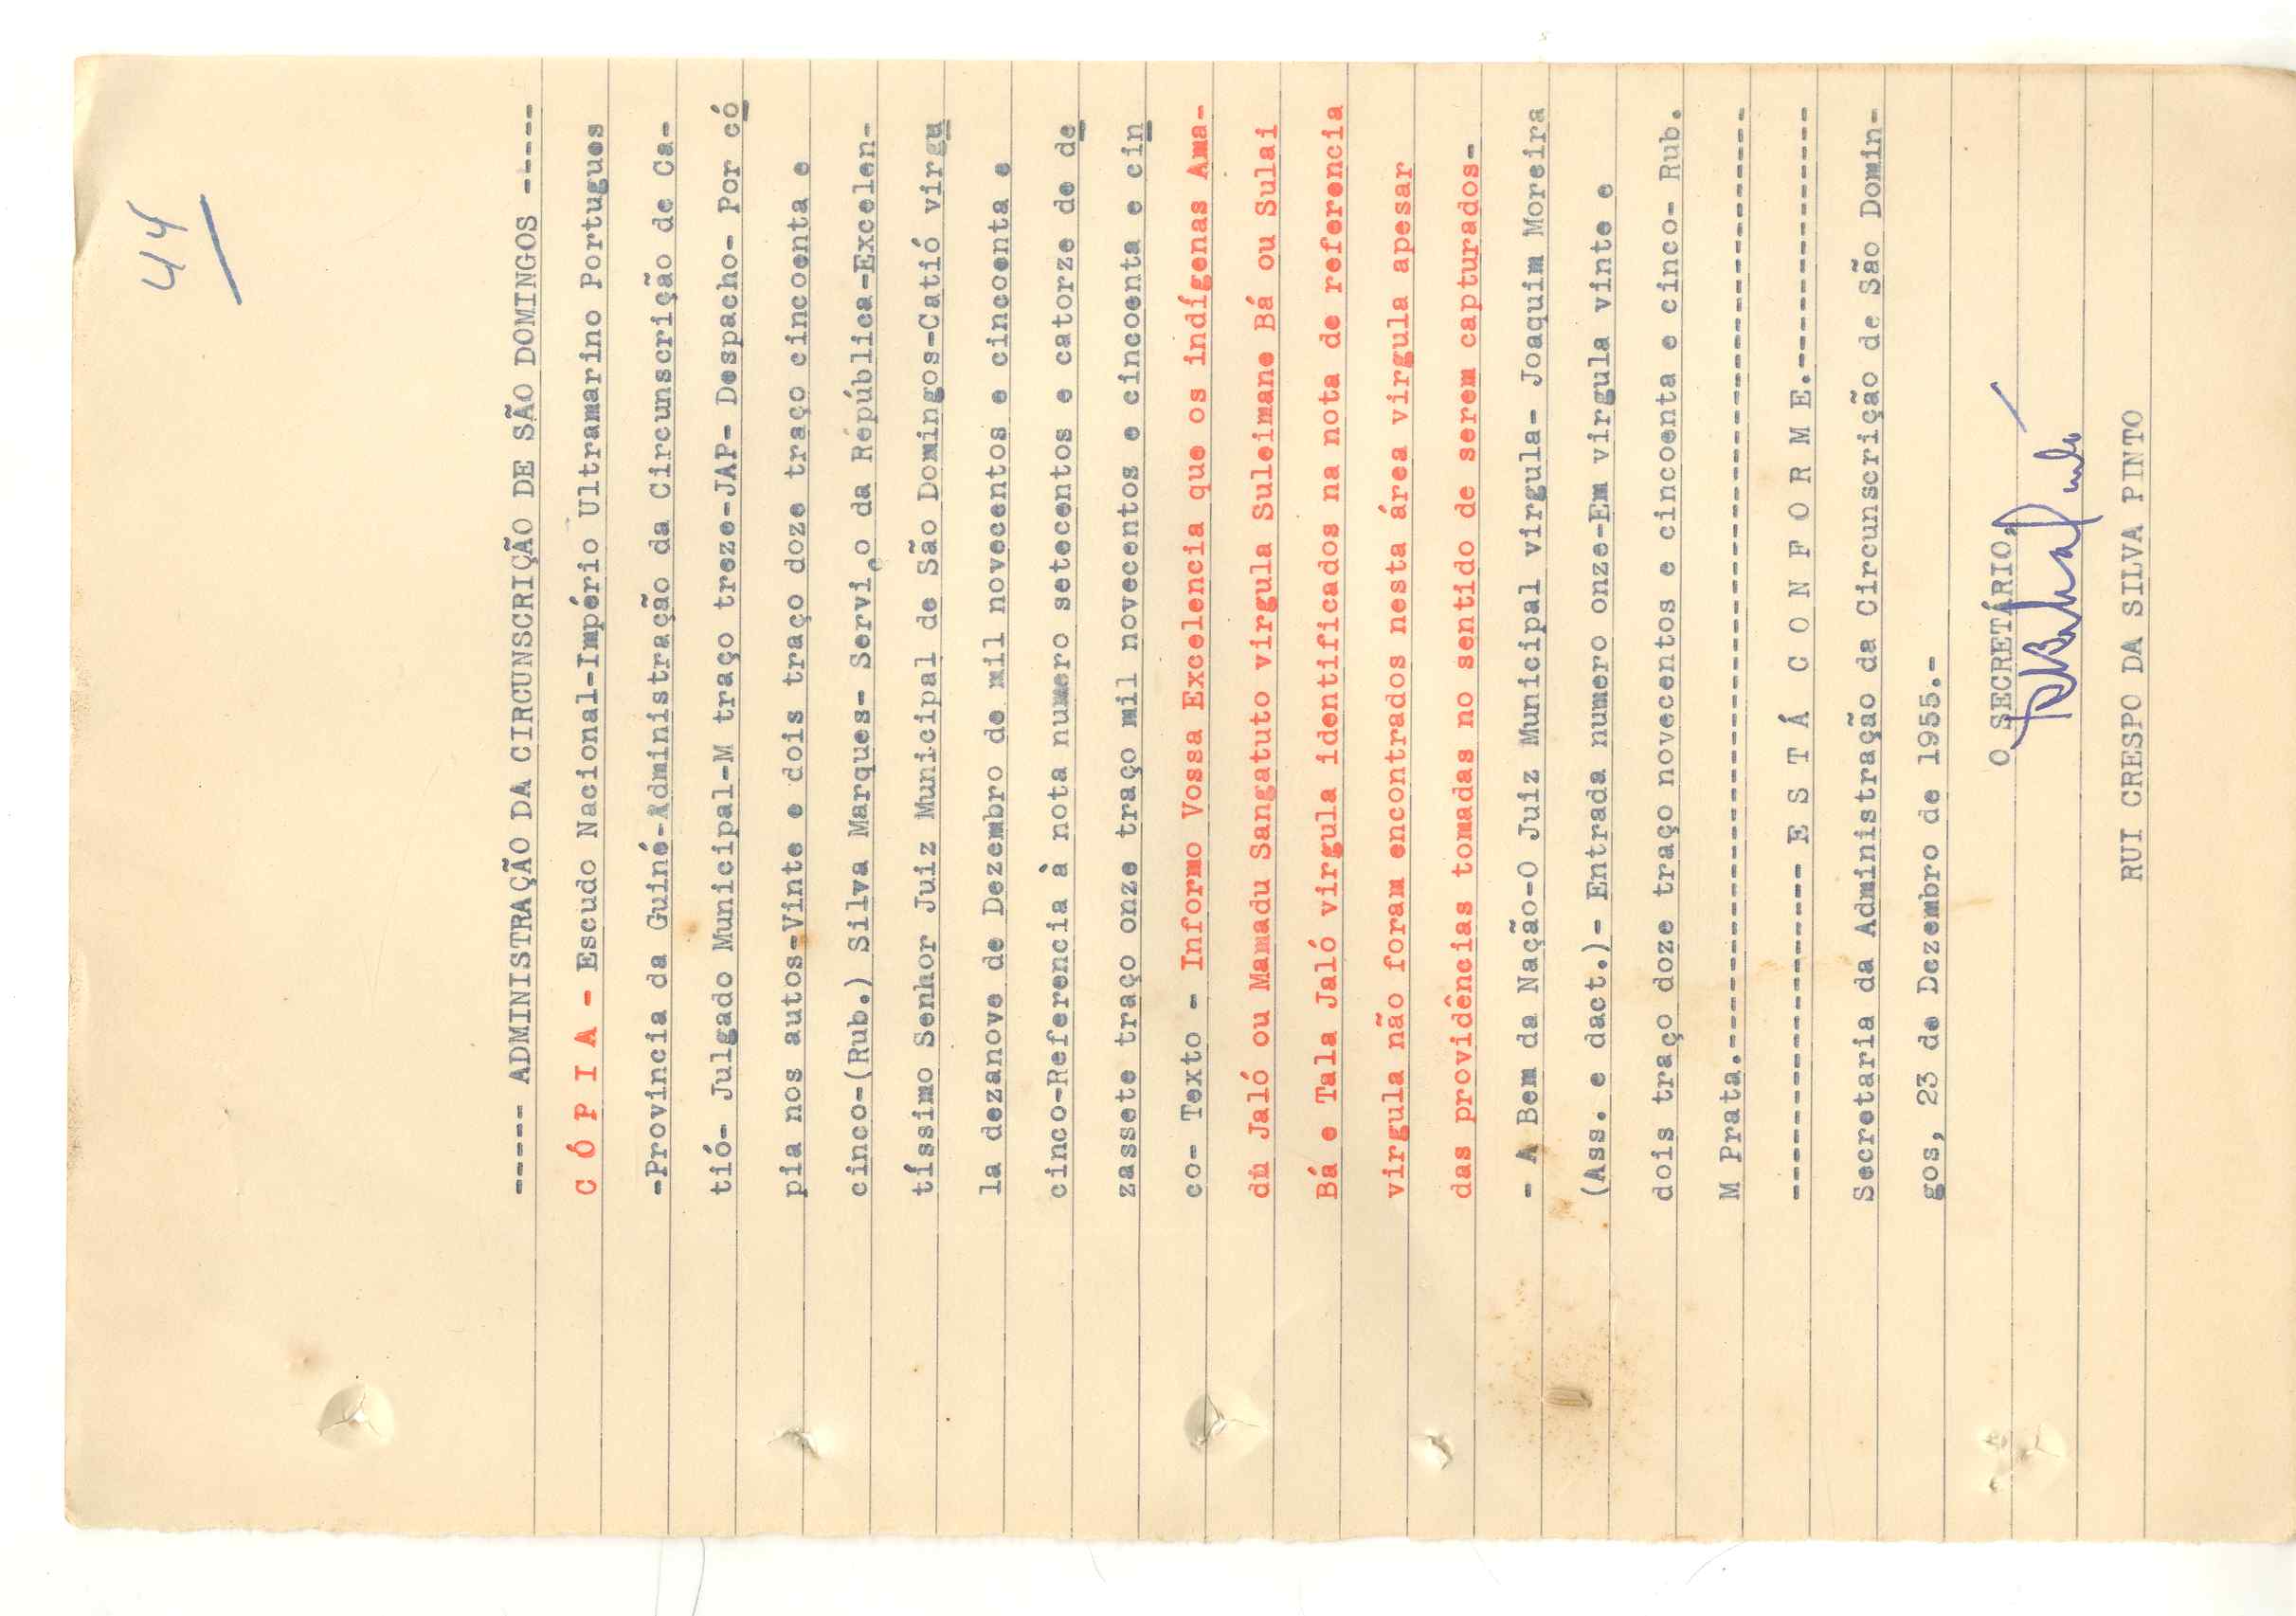 44
----- ADMINISTRAÇÃO DA CIRCUNSCRIÇÃO DE SÃO DOMINGOS -----
C Ó P I A - Escudo Nacional-Império Ultramarino Portugues
-Provincia da Guiné-Administração da Circunscrição de Ca-
tió- Julgado Municipal-M traço treze-JAP- Despacho- Por có
pia nos autos-Vinte e dois traço doze traço cincoenta e
cinco-(Rub.) Silva Marques- Serviço da República-Excelen-
tíssimo Senhor Juiz Municipal de São Domingos-Catió virgu
la dezanove de Dezembro de mil novecentos e cincoenta e
cinco-Referencia à nota numero setecentos e catorze de de
zassete traço onze traço mil novecentos e cincoenta e cin
co- Texto - Informo Vossa Excelencia que os indígenas Ama-
dú Jaló ou Mamadu Sangatuto virgula Suleimane Bá ou Sulai
Bá e Tala Jaló virgula identificados na nota de referencia
virgula não foram encontrados nesta área virgula apesar
das providências tomadas no sentido de serem capturados-
- A Bem da Nação-O Juiz Municipal virgula- Joaquim Moreira
(Ass. e dact.)- Entrada numero onze-Em virgula vinte e
dois traço doze traço novecentos e cincoenta e cinco- Rub.
M Prata.--------------------------------------------------
------------------ E S T Á C O N F O R M E.---------------
Secretaria da Administração da Circunscrição de São Domin-
gos, 23 de Dezembro de 1955.-
O SECRETÁRIO,
RUI CRESPO DA SILVA PINTO